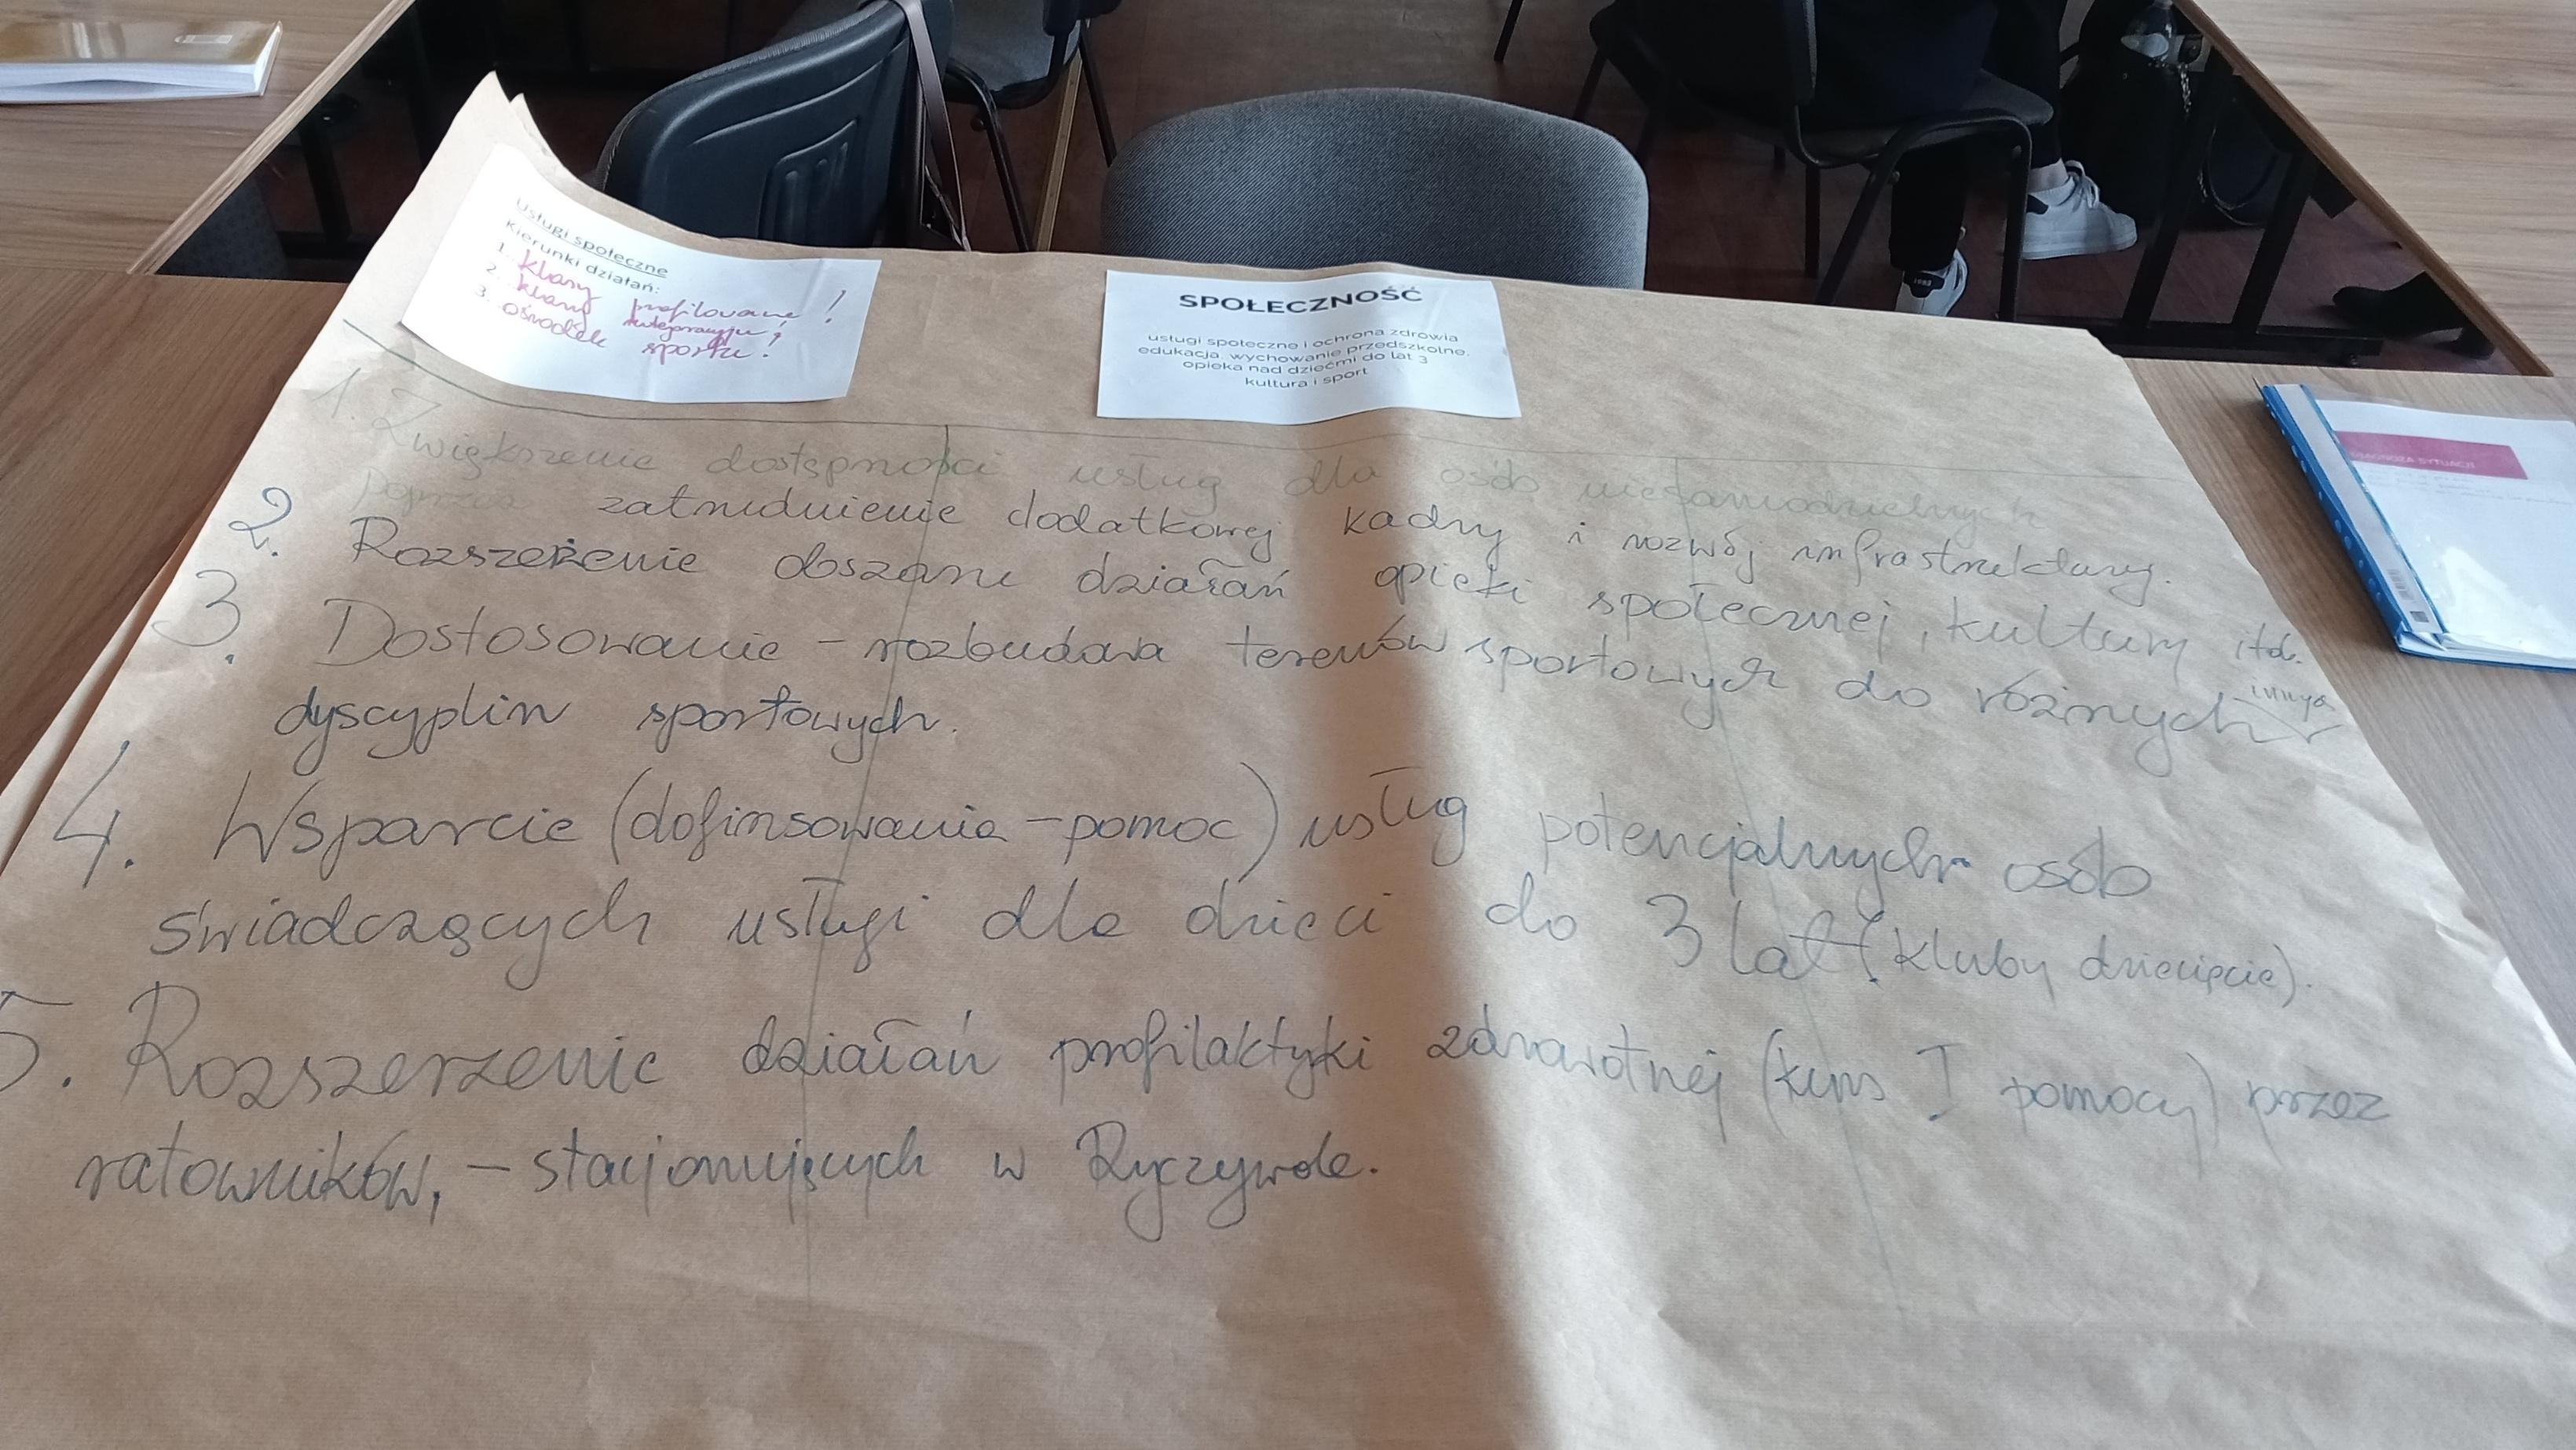 Usługi społeczne
Kierunki działań:
1. klasy profilowane!
2. klasy integracyjne!
3. ośrodek sportu!
SPOŁECZNOŚĆ
usługi społeczne i ochrona zdrowia
edukacja, wychowanie przedszkolne,
opieka nad dziećmi do lat 3
kultura i sport
DIAGNOZA SYTUACJI
1. Zwiększenie dostępności usług dla osób niesamodzielnych
poprzez zatrudnienie dodatkowej kadry i rozwój infrastruktury.
2. Rozszerzenie obszaru działań opieki społecznej, kultury itd.
3. Dostosowanie - rozbudowa terenów sportowych do różnych innych
dyscyplin sportowych.
4. Wsparcie (dofinsowania - pomoc) usług potencjalnych osób
świadczących usługi dla dzieci do 3 lat (kluby dziecięce).
5. Rozszerzenie działań profilaktyki zdrowotnej (kurs I pomocy) przez
ratowników, - stacjonujących w Ryczywole.